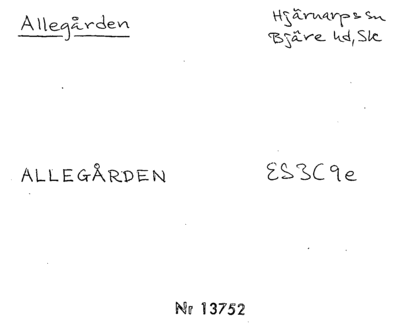 Allegården
Hjärnarps sn
Bjäre hd, Sk
ALLEGÅRDEN
ES3C9e
Nr 13752